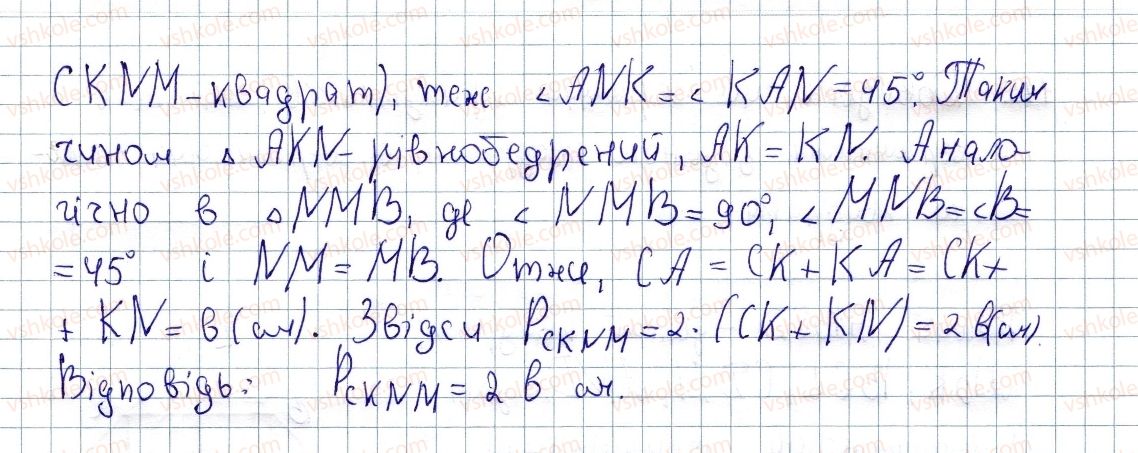 CKNM - квадрат), теж ∠ANK = ∠KAN = 45°. Таким
чином △AKN - рівнобедрений, AK = KN. Анало-
гічно в △NMB, де ∠NMB = 90°, ∠MNB = ∠B =
= 45° і NM = MB. Отже, CA = CK + KA = CK +
+ KN = b (см). Звідси P_CKNM = 2·(CK + KN) = 2b (см).
Відповідь: P_CKNM = 2b см.